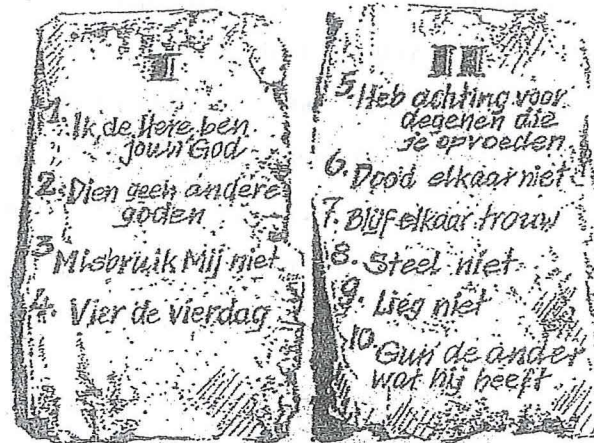 I
1. Ik de Here ben
jouw God
2. Dien geen andere
goden
3 Misbruik Mij niet
4. Vier de vierdag
II
5. Heb achting voor
degenen die
je opvoeden
6. Dood elkaar niet
7. Blijf elkaar trouw
8. Steel niet
9. Lieg niet
10. Gun de ander
wat hij heeft